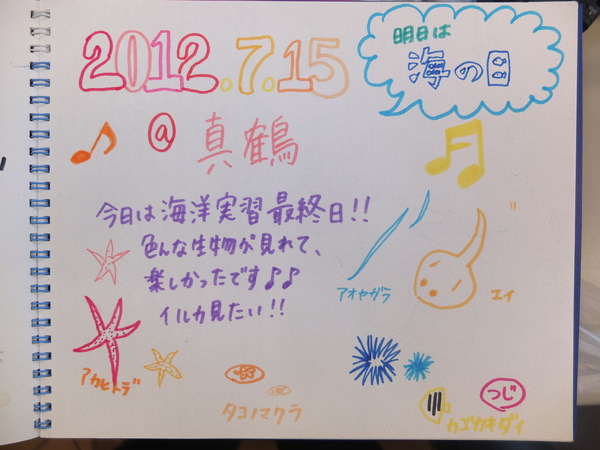 2012.7.15
明日は
海の日
@ 真鶴
今日は海洋実習最終日!!
色んな生物が見れて、
楽しかったです♪♪
イルカ見たい!!
アオヤガラ
エイ
アカヒトデ
タコノマクラ
カゴカキダイ
つじ